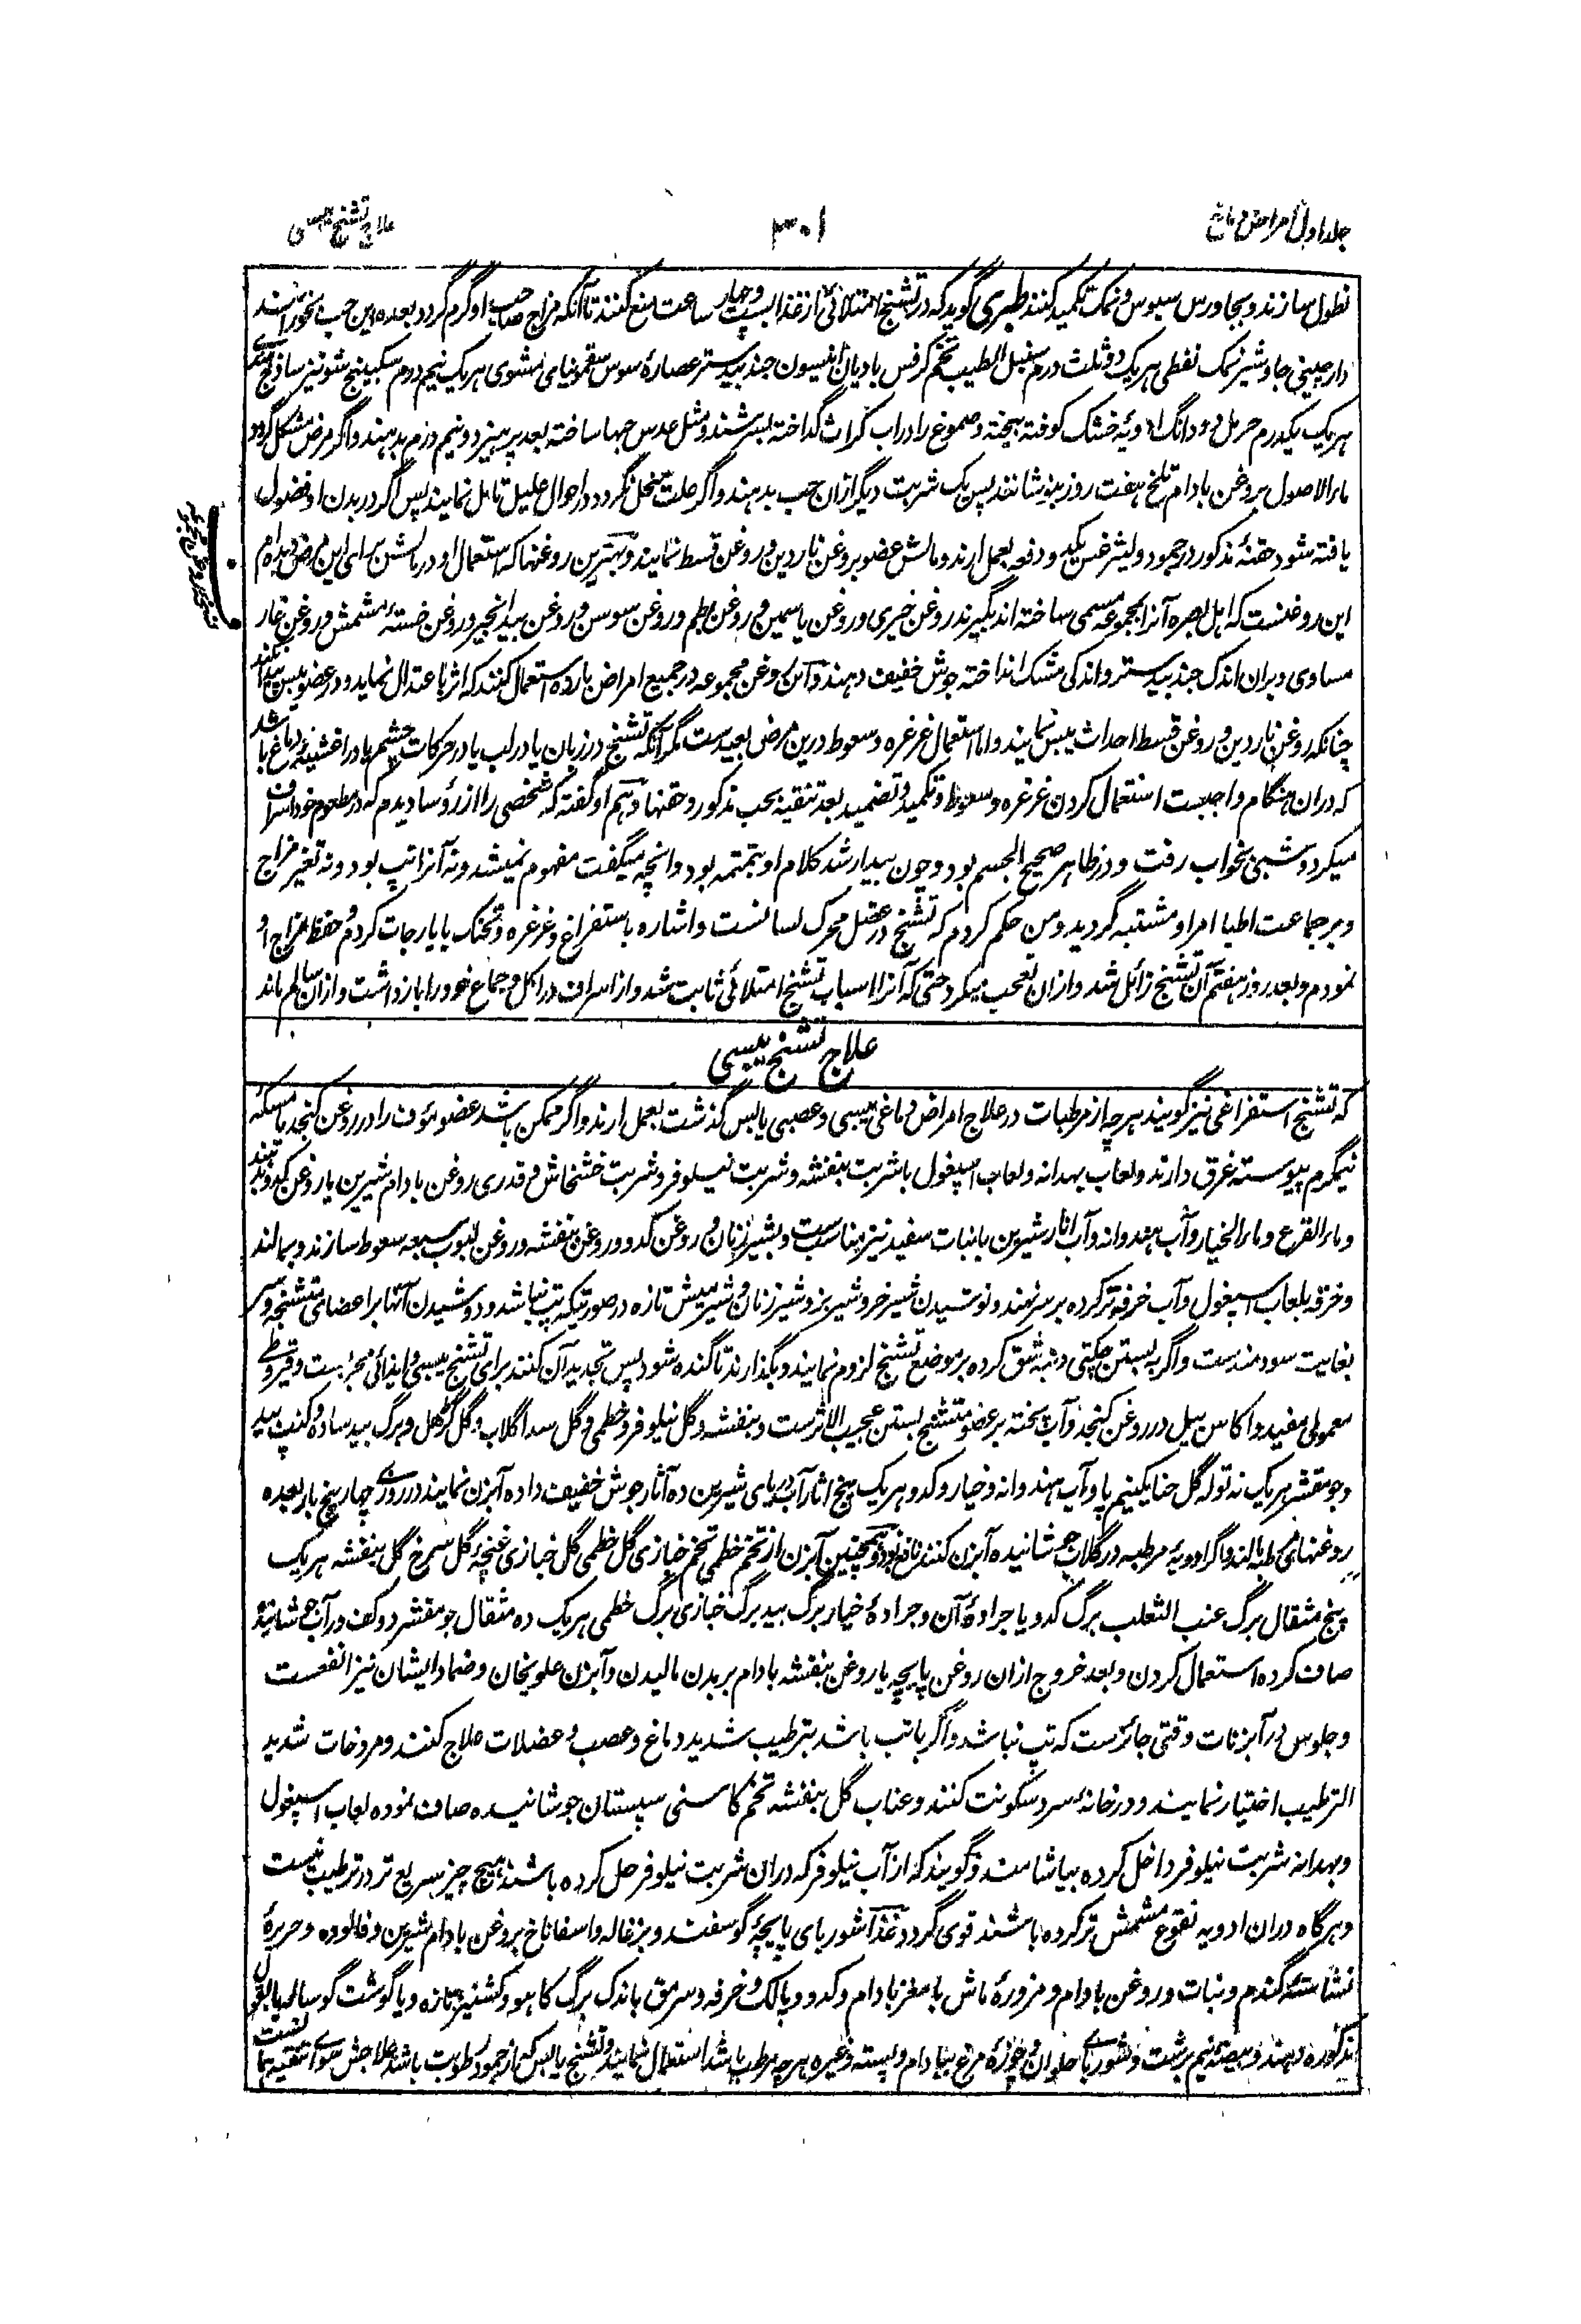 جلد اول امراض دماغ
۳۰۱
علاج تشنج یبسی
نطول سازند و بجاورس سبوس و نمک تکمید کنند طبری گوید که در تشنج امتلائی از غذا بیست و چهار ساعت منع کنند تا آنکه مزاج صاحب او گرم گردد بعده این حب بخورانند
دارچینی جاوشیر نمک نفطی هر یک دو ثلث درم سنبل الطیب تخم کرفس بادیان انیسون جندبیدستر عصارهٔ سوس سقمونیای مشوی هر یک نیم درم سکبینج شونیز ساذج هندی
هر یک یکدرم حرمل دو دانگ ادویهٔ خشک کوفته بیخته و صموغ را در اب کراث گداخته بسرشند و مثل عدس حبها ساخته بعد پرهیز دو نیم درم بدهند و اگر مرض مشکل گردد
ماء الاصول بروغن بادام تلخ هفت روز بنوشانند پس یک شربت دیگر ازان حب بدهند و اگر علت منحل نگردد در احوال علیل تامل نمایند پس اگر در بدن او فضول
یافته شود حقنهٔ مذکور در جمود و لیثرغس یک دو دفعه بعمل ارند و مالش عضو بروغن ناردین و روغن قسط نمایند و بهترین روغنها که استعمال او در مالش برای این مرض دیده‌ام
این روغنست که اهل بصره آنرا بمجموعه مسمی ساخته اند بگیرند روغن خیری و روغن یاسمین و روغن بطم و روغن سوسن و روغن بیدانجیر و روغن خستهٔ مشمش و روغن غار
مساوی و بران اندک جندبیدستر و اندکی مشک انداخته جوش خفیف دهند و این روغن مجموعه در جمیع امراض بارده استعمال کنند که اثر باعتدال نماید و در عضو یبس پیدا نکند
چنانکه روغن ناردین و روغن قسط احداث یبس نمایند و اما استعمال غرغره و سعوط درین مرض بعیدست مگر آنکه تشنج در زبان یا در لب یا در حرکات چشم یا در اغشیهٔ دماغ باشد
که دران هنگام واجبست استعمال کردن غرغره و سعوط و تکمید و تضمید بعد تنقیه بحب مذکور و حقنها و هم او گفته که شخصی را از رؤسا دیدم که در مطعوم خود اسراف
میکرد و شبی بخواب رفت و در ظاهر صحیح الجسم بود و چون بیدار شد کلام او بتمتمه بود و انچه میگفت مفهوم نمیشد و نه آنرا تپ بود و نه تغیر مزاج
و بر جماعت اطبا امر او مشتبه گردید و من حکم کردم که تشنج در عضل محرک لسانست و اشاره باستفراغ و غرغره و تحنک بایارجات کردم و حفظ مزاج او
نمودم و بعد روز هفتم آن تشنج زائل شد و ازان تعجب میکرد حتی که آنرا اسباب تشنج امتلائی ثابت شد و از اسراف در اکل و جماع خود را باز داشت و ازان سالم ماند
علاج تشنج یبسی
که تشنج استفراغی نیز گویند هر چه از مرطبات در علاج امراض دماغی یبسی و عصبی یابس گذشت بعمل ارند و اگر ممکن باشد عضو مؤف را در روغن کنجد یا مسکه
نیمگرم پیوسته غرق دارند و لعاب بهدانه و لعاب اسپغول با شربت بنفشه و شربت نیلوفر و شربت خشخاش و قدری روغن بادام شیرین یا روغن کدو دهند
و ماء القرع و ماء الخیار و آب هندوانه و آب انار شیرین با نبات سفید نیز مناسبست و بشیر زنان و روغن کدو و روغن بنفشه و روغن لبوب سبعه سعوط سازند و بمالند
و خرقه بلعاب اسپغول و آب خرفه تر کرده بر سر نهند و نوشیدن شیر خر و شیر بز و شیر زنان و شیر میش تازه در صورتیکه تپ نباشد و دوشیدن آنها بر اعضای متشنجه و سر
بغایت سودمندست و اگر به بستن چکتی دنبه شق کرده بر موضع تشنج لزوم نمایند و بگذارند تا گنده شود پس تجدید آن کنند برای تشنج یبسی و ایذائی مجربست و قیروطی
معمولی مفید و اکاس بیل در روغن کنجد و آب پخته بر عضو متشنج بستن عجیب الاثرست و بنفشه و گل نیلوفر و خطمی و گل سدا گلاب و گل گڑهل و برگ بید ساده و کنب بید
و جو مقشر هر یک نه توله گل حنا یکنیم پاو آب هندوانه و خیار و کدو هر یک پنج اثار آب دریای شیرین ده آثار جوش خفیف داده آبزن نمایند در روزی چهار پنج بار بعده
روغنهای رطبه بمالند و اگر ادویهٔ مرطبه در گلاب جوشانیده آبزن کنند نافع بود و همچنین آبزن از تخم خطمی تخم خبازی گل خطمی گل خبازی غنچهٔ گل سرخ گل بنفشه هر یک
پنج مثقال برگ عنب الثعلب برگ کدو یا جرادهٔ آن و جرادهٔ خیار برگ بید برگ خبازی برگ خطمی هر یک ده مثقال جو مقشر دو کف در آب جوشانیده
صاف کرده استعمال کردن و بعد خروج ازان روغن پایچه یا روغن بنفشه بادام بر بدن مالیدن و آبزن علویخان و ضماد ایشان نیز انفعست
و جلوس در آبزنات وقتی جائزست که تپ نباشد و اگر با تپ باشد بترطیب شدید دماغ و عصب و عضلات علاج کنند و مروخات شدید
الترطیب اختیار نمایند و در خانهٔ سرد سکونت کنند و عناب گل بنفشه تخم کاسنی سپستان جوشانیده صاف نموده لعاب اسپغول
و بهدانه شربت نیلوفر داخل کرده بیاشامند و گویند که از آب نیلوفر که دران شربت نیلوفر حل کرده باشند هیچ چیز سریع تر در ترطیب نیست
و هرگاه دران ادویه نقوع مشمش تر کرده باشند قوی گردد غذا شوربای پایچهٔ گوسفند و بزغاله و اسفاناخ بروغن بادام شیرین و فالوده و حریرهٔ
نشاستهٔ گندم و نبات و روغن بادام و مزورهٔ ماش با مغز بادام و کدو و پالک و خرفه و سرمق باندک برگ کاهو و کشنیز تازه و یا گوشت گوساله با بقول
مذکوره دهند و بیضهٔ نیم برشت و شوربای حلوان و چوزهٔ مرغ ببادام و پسته و غیره هر چه مرطب باشد استعمال نمایند و تشنج یابس که از جمود رطوبت باشد علاجش سوای تنقیه